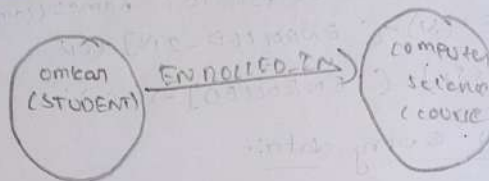 omkar
(STUDENT)
ENROLLED_IN
compute
science
(course